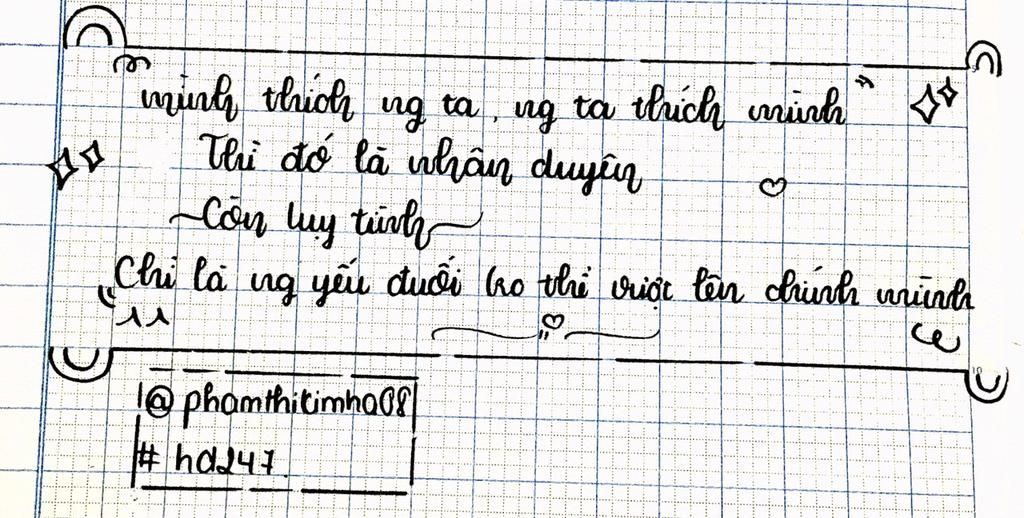 mình thích ng ta, ng ta thích mình
Thì đó là nhân duyên
Còn luỵ tình
Chỉ là ng yếu đuối ko thể vượt lên chính mình
@phamthikimha08
# hd247